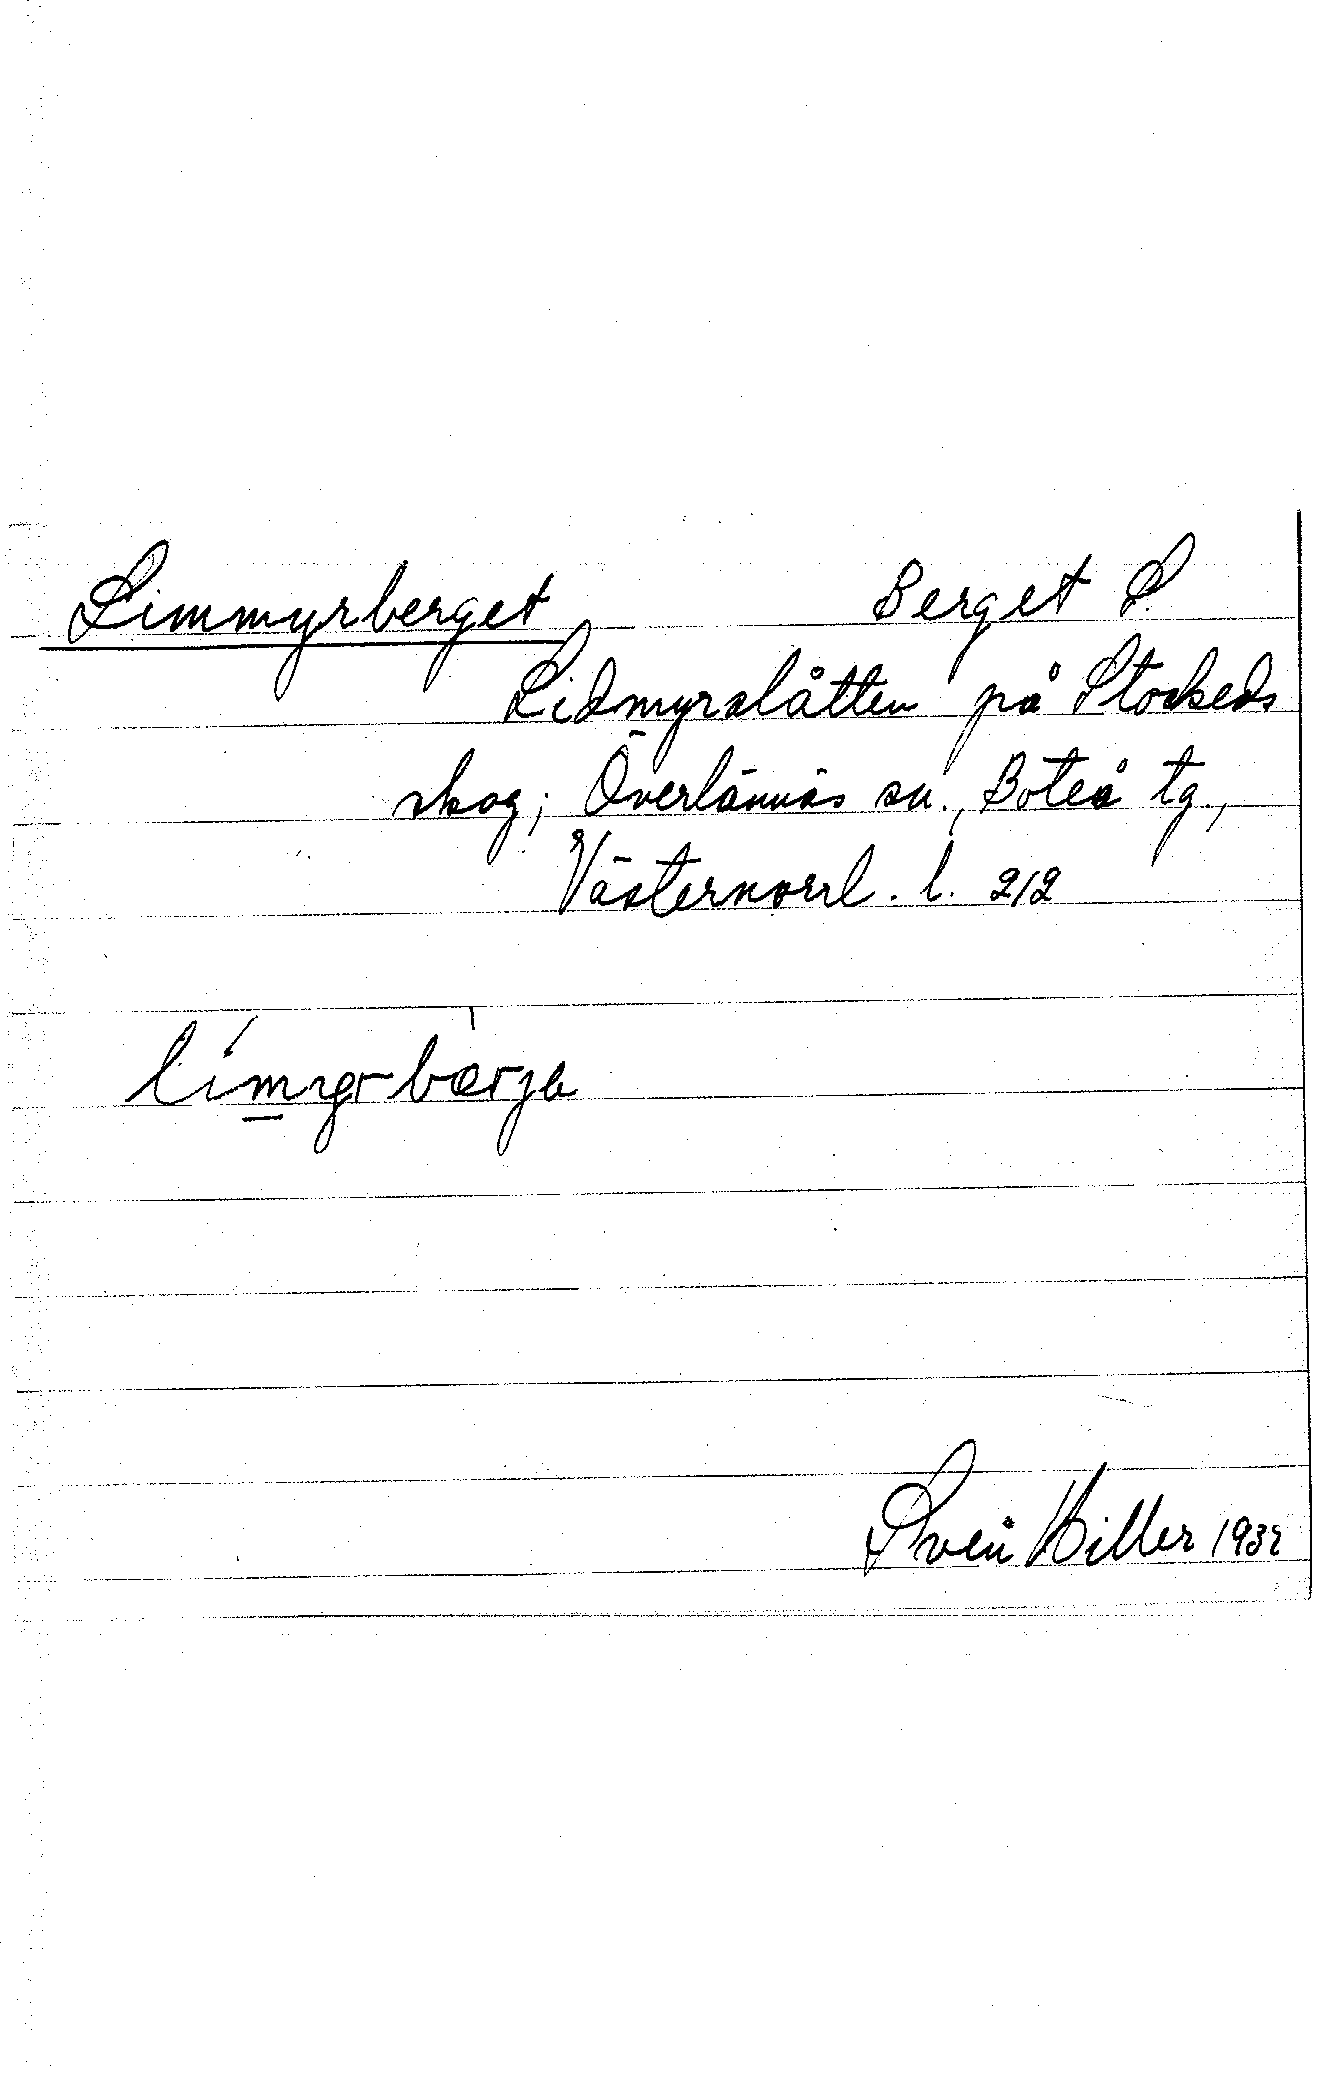 Limmyrberget Berget S.
Lidmyrslåtten på Stockeds
skog; Överlännäs sn., Boteå tg.,
Västernorrl. l. 212
límyr-bærjə
Sven Hiller 1932